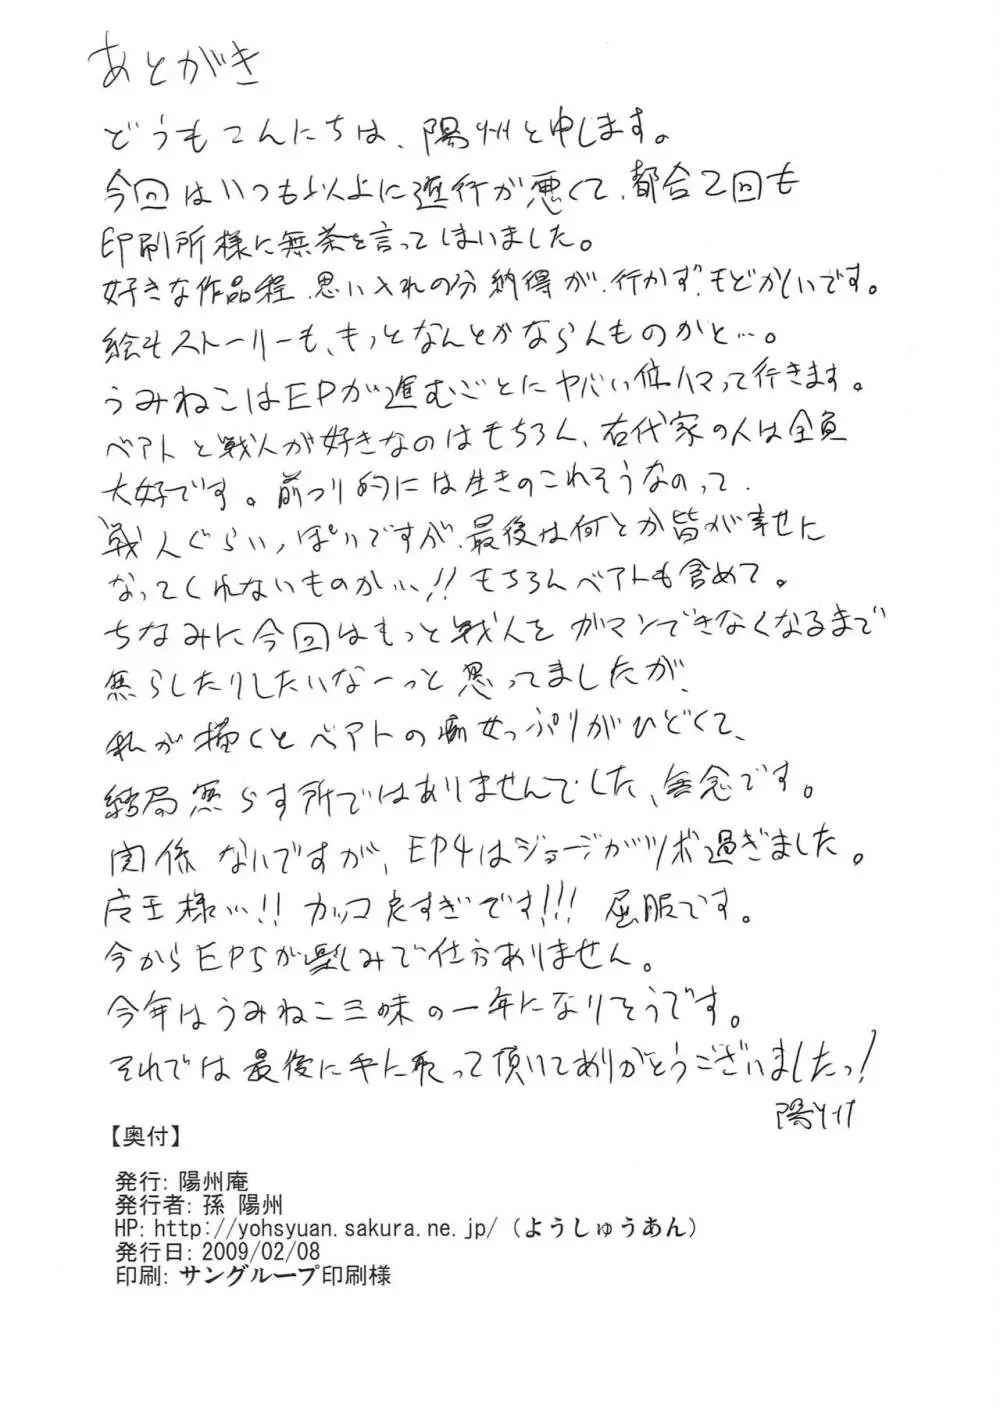 あとがき
どうもこんにちは、陽州と申します。
今回はいつも以上に進行が悪くて、都合2回も
印刷所様に無茶を言ってしまいました。
好きな作品程、思い入れの分納得が行かず、もどかしいです。
絵もストーリーも、もっとなんとかならんものかと…。
うみねこはEPが進むごとにヤバい位ハマって行きます。
ベアトと戦人が好きなのはもちろん、右代宮家の人は全員
大好です。前フリ的には生きのこれそうなのって、
戦人ぐらいっぽいですが、最後は何とか皆が幸せに
なってくれないものか…!! もちろんベアトも含めて。
ちなみに今回はもっと戦人を ガマンできなくなるまで
焦らしたりしたいなーっと思ってましたが、
私が描くとベアトの痴女っぷりがひどくて、
結局焦らす所ではありませんでした、無念です。
関係ないですが、EP4はジョージがツボ過ぎました。
店王様…!! カッコ良すぎです!!! 屈服です。
今からEP5が楽しみで仕方ありません。
今年はうみねこ三昧の一年になりそうです。
それでは最後に手に取って頂いてありがとうございましたっ!
陽州
【奥付】
発行: 陽州庵
発行者: 孫 陽州
HP: http://yohsyuan.sakura.ne.jp/ (ようしゅうあん)
発行日: 2009/02/08
印刷: サングループ印刷様